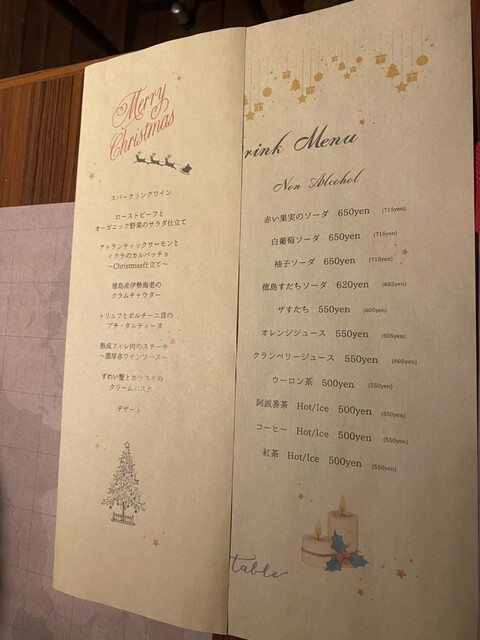 Merry
Christmas
スパークリングワイン
ローストビーフと
オーガニック野菜のサラダ仕立て
アトランティックサーモンと
イクラのカルパッチョ
～Christmas仕立て～
徳島産伊勢海老の
クラムチャウダー
トリュフとポルチーニ茸の
プチ・タルティーヌ
熟成フィレ肉のステーキ
～濃厚赤ワインソース～
ずわい蟹とカラスミの
クリームパスタ
デザート
rink Menu
Non Alcohol
赤い果実のソーダ 650yen (715yen)
白葡萄ソーダ 650yen (715yen)
柚子ソーダ 650yen (715yen)
徳島すだちソーダ 620yen (682yen)
ザすだち 550yen (605yen)
オレンジジュース 550yen (605yen)
クランベリージュース 550yen (605yen)
ウーロン茶 500yen (550yen)
阿波番茶 Hot/Ice 500yen (550yen)
コーヒー Hot/Ice 500yen (550yen)
紅茶 Hot/Ice 500yen (550yen)
table